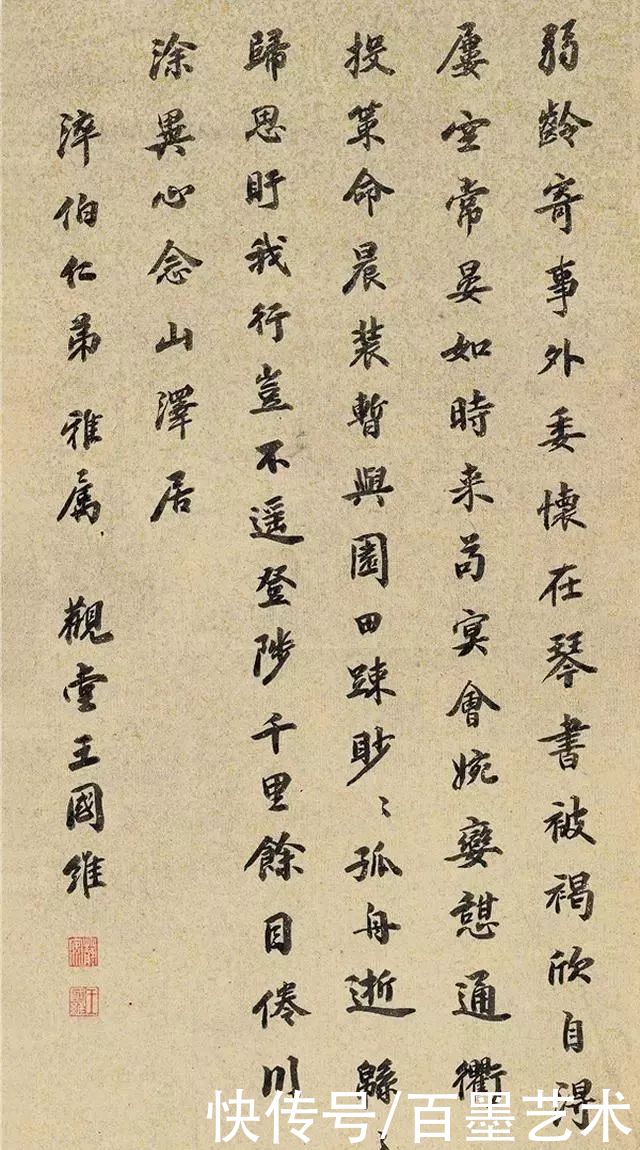 弱齡寄事外委懷在琴書被褐欣自得
屢空常晏如時来苟冥會婉孌憩通衢
投策命晨裝暫與園田踈眇〻孤舟逝緜〻
歸思盱我行豈不遥登陟千里餘目倦川
涂異心念山澤居
淬伯仁弟雅属 觀堂王國維
快传号/百墨艺术